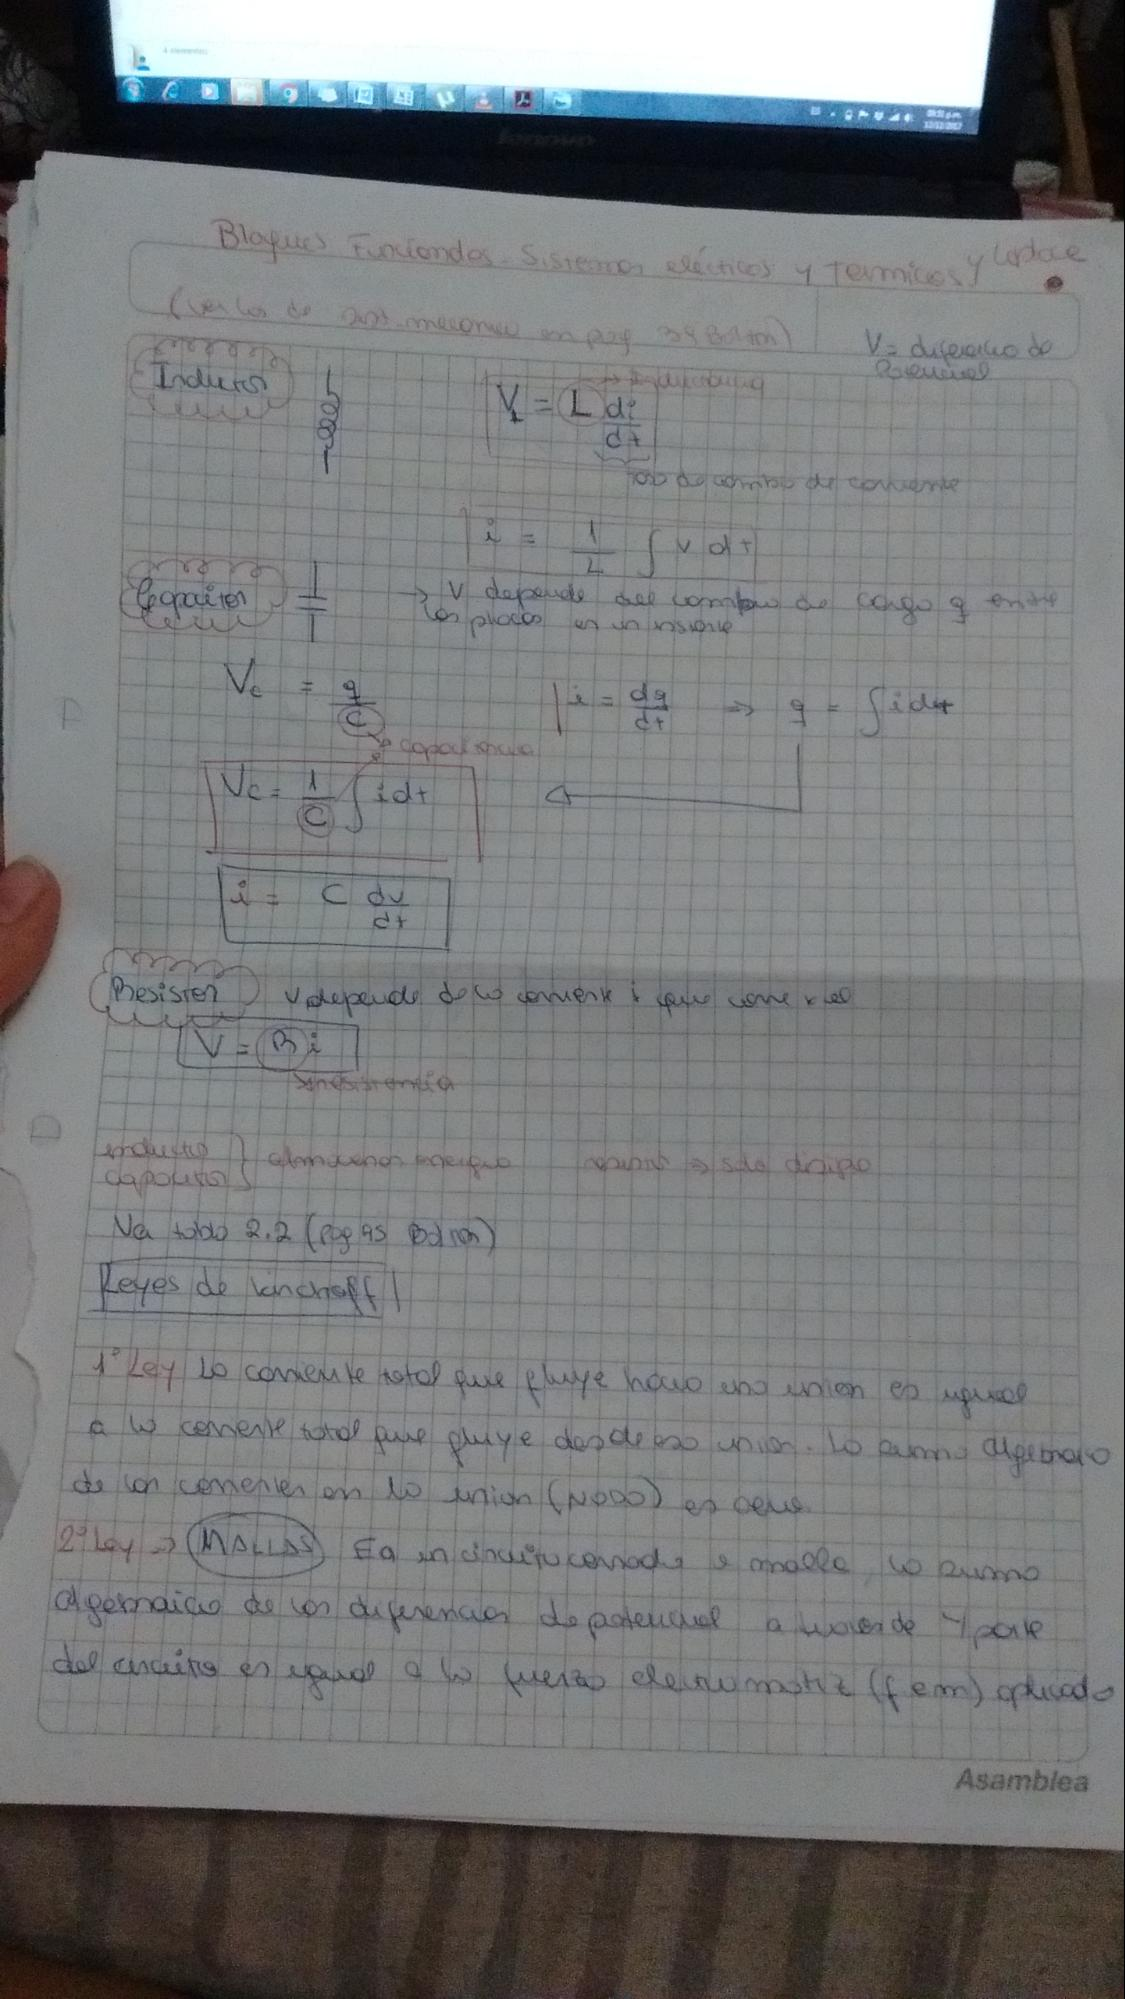 4 elementos
12/12/2017
lenovo
Bloques Funcionales. Sistemas eléctricos y Termicos y Laplace
(ver los de sist. mecanico en pag 39 Bolton)
V = diferencia de
Potencial
Inductor
V_L = L di/dt
tasa de cambio de corriente
i = 1/L ∫ v dt
Capacitor
→ V depende del cambio de carga q entre
las placas en un instante
V_c = q/C
i = dq/dt ⇒ q = ∫ i dt
capacitancia
V_c = 1/C ∫ i dt
i = C dv/dt
Resistor
V depende de la corriente i que corre x el
V = R i
resistencia
inductor
capacitor } almacenan energia
⇒ solo disipa
Va todo 2.2 (pag 45 Bolton)
Leyes de Kirchoff
1º Ley La corriente total que fluye hacia una union es igual
a la corriente total que fluye desde esa union. La suma algebraica
de las corrientes en la union (NODO) es cero.
2º Ley → MALLAS En un circuito cerrado o malla, la suma
algebraica de las diferencias de potencial a traves de parte
del circuito es igual a la fuerza electromotriz (fem) aplicada
Asamblea